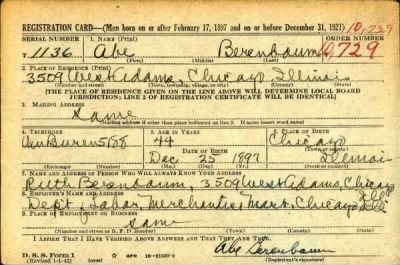 REGISTRATION CARD—(Men born on or after February 17, 1897 and on or before December 31, 1921) 10,729
SERIAL NUMBER 1. NAME (Print) ORDER NUMBER
1136 Abe Berenbaum 10,729
(First) (Middle) (Last)
2. PLACE OF RESIDENCE (Print)
3509 West Adams, Chicago, Illinois
(Number and street) (Town, township, village, or city) (County) (State)
[THE PLACE OF RESIDENCE GIVEN ON THE LINE ABOVE WILL DETERMINE LOCAL BOARD
JURISDICTION; LINE 2 OF REGISTRATION CERTIFICATE WILL BE IDENTICAL]
3. MAILING ADDRESS
Same
[Mailing address if other than place indicated on line 2. If same insert word same]
4. TELEPHONE 5. AGE IN YEARS 6. PLACE OF BIRTH
Van Buren 5758 44 Chicago
DATE OF BIRTH (Town or county)
Dec 25 1897 Illinois
(Exchange) (Number) (Mo.) (Day) (Yr.) (State or country)
7. NAME AND ADDRESS OF PERSON WHO WILL ALWAYS KNOW YOUR ADDRESS
Ruth Berenbaum, 3509 West Adams, Chicago Ill
8. EMPLOYER'S NAME AND ADDRESS
Dept. Labor, Merchantise Mart, Chicago, Ill
9. PLACE OF EMPLOYMENT OR BUSINESS
Same
(Number and street or R. F. D. number) (Town) (County) (State)
I AFFIRM THAT I HAVE VERIFIED ABOVE ANSWERS AND THAT THEY ARE TRUE.
D. S. S. Form 1
(Revised 1-1-42) (over) Abe Berenbaum